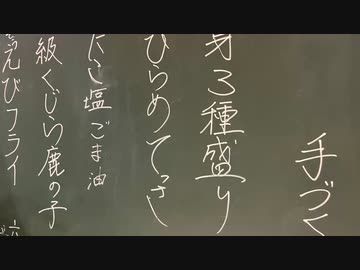 手づく
身3種盛り
ひらめてっさ
たこ塩ごま油
級くじら鹿の子
えびフライ